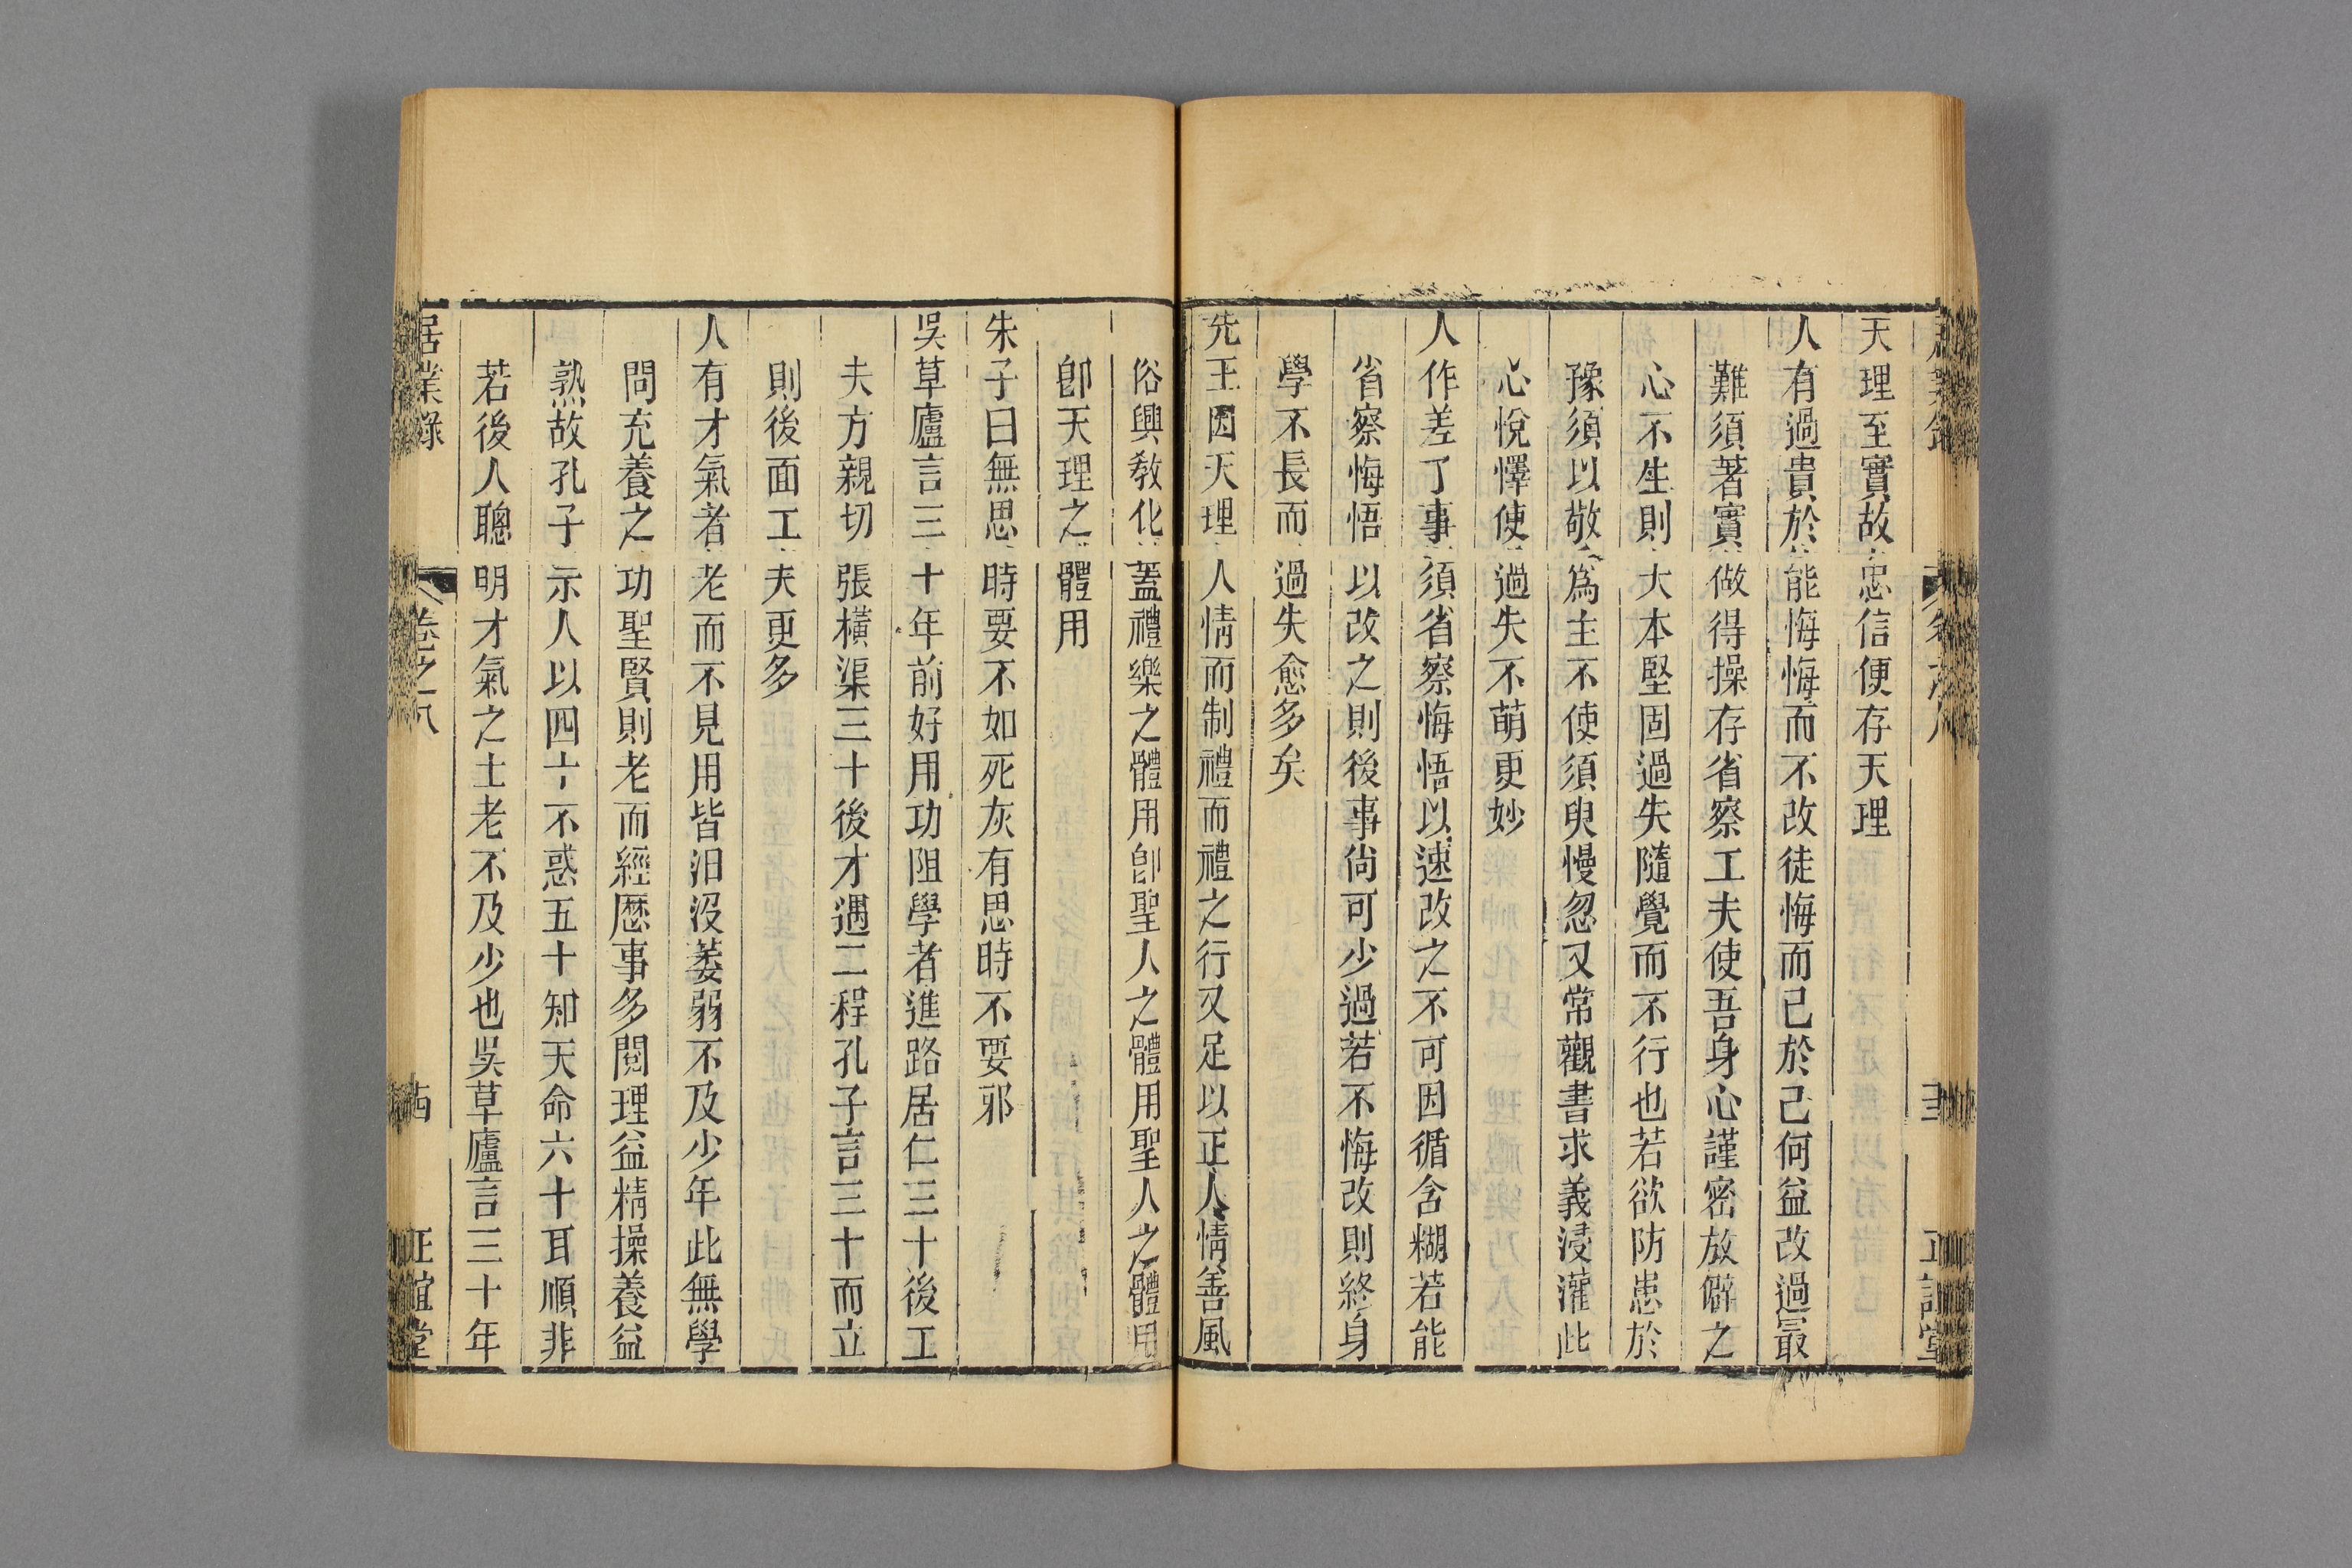 天理至實故忠信便存天理
人有過貴於能悔悔而不改徒悔而已於己何益改過最
難須著實做得操存省察工夫使吾身心謹密放僻之
心不生則大本堅固過失隨覺而不行也若欲防患於
豫須以敬爲主不使須臾慢忽又常觀書求義浸灌此
心悅懌使過失不萌更妙
人作差了事須省察悔悟以速改之不可因循含糊若能
省察悔悟以改之則後事尚可少過若不悔改則終身
學不長而過失愈多矣
先王因天理人情而制禮而禮之行又足以正人情善風
俗興教化蓋禮樂之體用卽聖人之體用聖人之體用
卽天理之體用
朱子曰無思時要不如死灰有思時不要邪
吳草廬言三十年前好用功阻學者進路居仁三十後工
夫方親切張橫渠三十後才遇二程孔子言三十而立
則後面工夫更多
人有才氣者老而不見用皆汨沒萎弱不及少年此無學
問充養之功聖賢則老而經歷事多閱理益精操養益
熟故孔子示人以四十不惑五十知天命六十耳順非
若後人聰明才氣之士老不及少也吳草廬言三十年
居業錄 卷之八 正誼堂